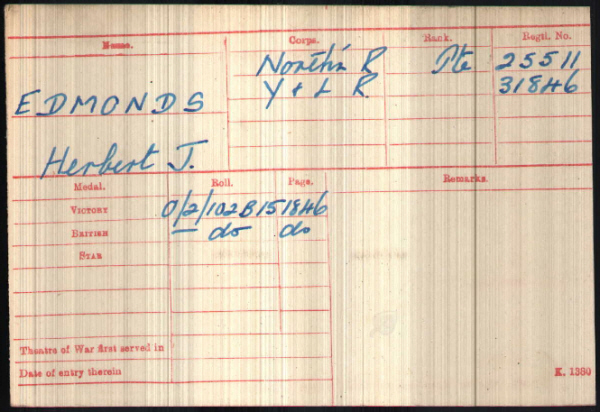 Name. Corps. Rank. Regtl. No.
North'n R Pte 25511
EDMONDS Y & L R. 31846
Herbert J.
Medal. Roll. Page. Remarks.
VICTORY O/2/102B15 1846
BRITISH — do do
STAR
Theatre of War first served in
Date of entry therein K. 1380